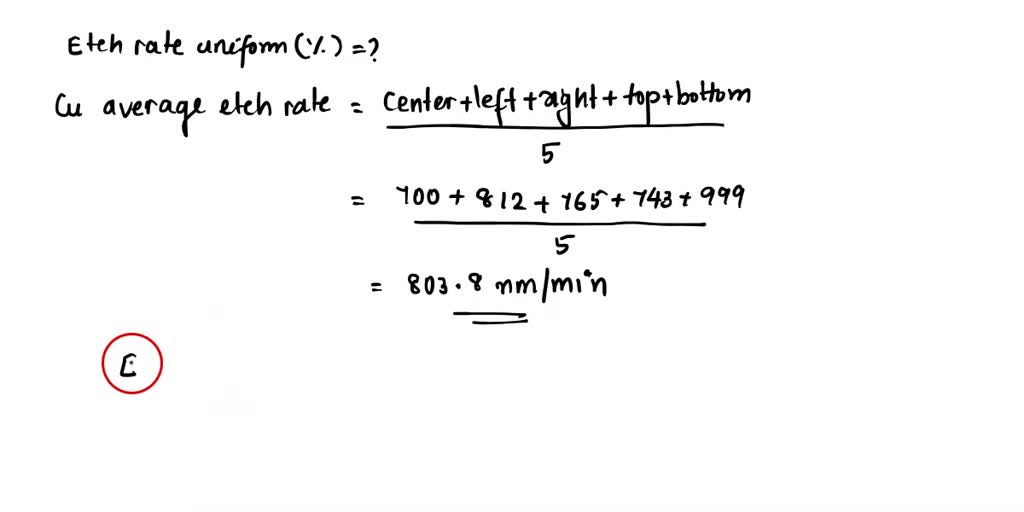 Etch rate uniform (%) = ?
Cu average etch rate = center+left+right+top+bottom
5
= 700 + 812 + 765 + 743 + 999
5
= 803.8 nm/min
E